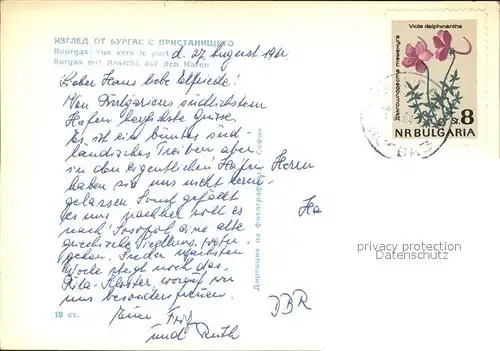 ИЗГЛЕД ОТ БУРГАС С ПРИСТАНИЩЕТО
Bourgas-vue vers le port
Burgas mit Ansicht auf den Hafen
d. 27. August 196
Lieber Hans liebe Elfriede!
Von Bulgariens südlichstem
Hafen herzlichste Grüsse.
Es ist ein buntes süd-
ländisches Treiben aber
in den eigentlichen Hafen
haben sie uns nicht herein-
gelassen. Sonst gefällt
es uns nachher soll es
nach Sosopol eine alte
griechische Siedlung
gehen. In der nächsten
Woche steigt noch das
Rila-Kloster, worauf wir
uns besonders freuen.
Eure Fritz
und Ruth
10 ст.
Дирекция на фотография София
Herrn
Ha
DDR
Viola delphinantha
8
NR BULGARIA
privacy protection
Datenschutz